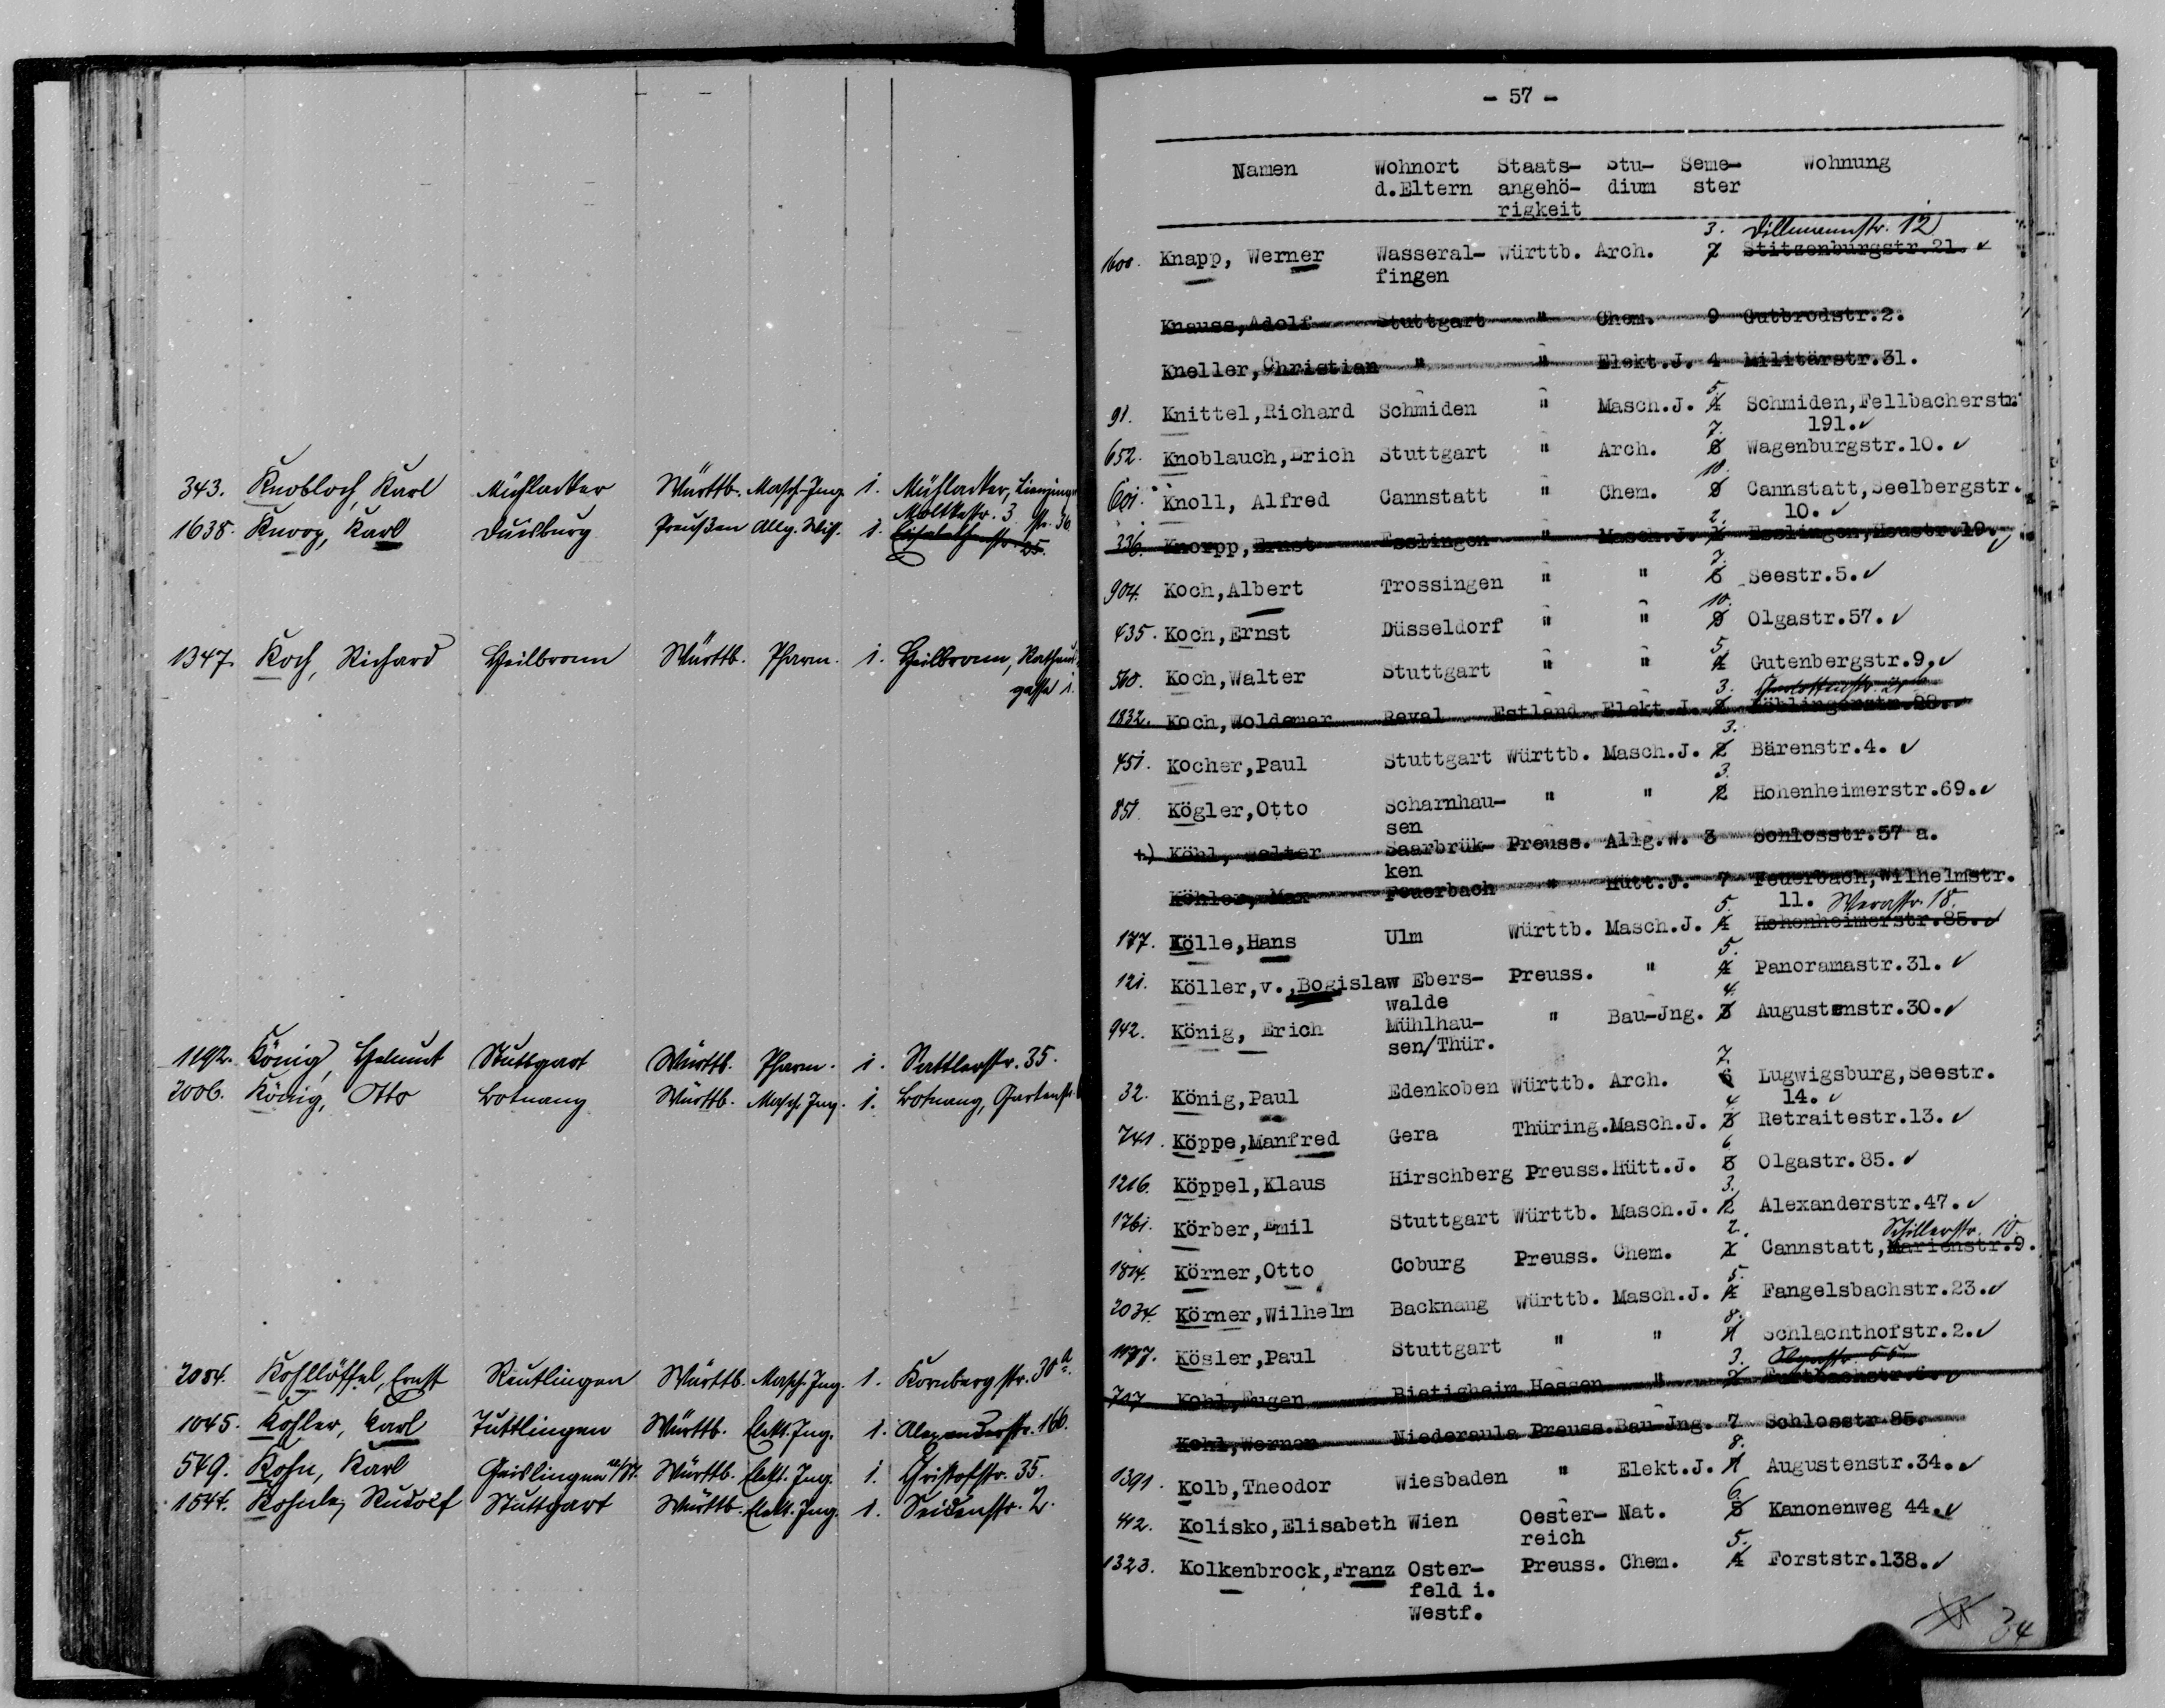 343. Knobloch, Karl Mühlacker Württb. Masch.-Ing. 1. Mühlacker, Lienzinger
str. 36
1638. Knoop, Karl Duisburg Preußen Allg. Wiss. 1. Moltkestr. 3 Elisabethenstr. 25.
1347. Koch, Richard Heilbronn Württb. Pharm. 1. Heilbronn, Rathaus
gasse 1.
1192. König, Helmut Stuttgart Württb. Pharm. 1. Sattlerstr. 35.
2006. König, Otto Botnang Württb. Masch. Ing. 1. Botnang, Gartenstr.
2084. Kohllöffel, Ernst Reutlingen Württb. Masch. Ing. 1. Kornbergstr. 30a.
1045. Kohler, Karl Tuttlingen Württb. Elekt. Ing. 1. Alexanderstr. 166.
549. Kohn, Karl Geislingen a/St. Württb. Elekt. Ing. 1. Christofstr. 35.
1544. Kohnle, Rudolf Stuttgart Württb. Elekt. Ing. 1. Seidenstr. 2.
- 57 -
Namen Wohnort Staats- Stu- Seme- Wohnung
d.Eltern angehö- dium ster
rigkeit
3. Dillmannstr. 12
1600. Knapp, Werner Wasseral- Württb. Arch. 7 Stitzenburgstr.21.
fingen
Knauss,Adolf Stuttgart " Chem. 9 Gutbrodstr.2.
Kneller,Christian " " Elekt.J. 4 Militärstr.31.
5.
91. Knittel,Richard Schmiden " Masch.J. 4 Schmiden,Fellbacherstr.
7. 191.
652. Knoblauch,Erich Stuttgart " Arch. 6 Wagenburgstr.10.
10.
601. Knoll, Alfred Cannstatt " Chem. 9 Cannstatt,Seelbergstr.
2. 10.
336. Knorpp,Ernst Esslingen " Masch.J. 1 Esslingen,Neustr.19.
7.
904. Koch,Albert Trossingen " " 6 Seestr.5.
10.
435. Koch,Ernst Düsseldorf " " 9 Olgastr.57.
5.
560. Koch,Walter Stuttgart " " 4 Gutenbergstr.9.
3. Charlottenstr. 21b
1832. Koch,Woldemar Reval Estland Elekt.J. 2 Böblingerstr.98.
3.
451. Kocher,Paul Stuttgart Württb. Masch.J. 2 Bärenstr.4.
3.
851. Kögler,Otto Scharnhau- " " 2 Hohenheimerstr.69.
sen
+) Köhl, Walter Saarbrük- Preuss. Allg.W. 3 Schlosstr.57 a.
ken
Köhler, Max Feuerbach " Hütt.J. 7 Feuerbach,Wilhelmstr.
5. 11. Werastr. 18.
177. Kölle,Hans Ulm Württb. Masch.J. 4 Hohenheimerstr.85.
5.
121. Köller,v.,Bogislaw Ebers- Preuss. " 4 Panoramastr.31.
walde 4.
942. König, Erich Mühlhau- " Bau-Jng. 3 Augustenstr.30.
sen/Thür.
7.
32. König,Paul Edenkoben Württb. Arch. 6 Lugwigsburg,Seestr.
4. 14.
741. Köppe,Manfred Gera Thüring.Masch.J. 3 Retraitestr.13.
6.
1216. Köppel,Klaus Hirschberg Preuss.Hütt.J. 5 Olgastr.85.
3.
1761. Körber,Emil Stuttgart Württb. Masch.J. 2 Alexanderstr.47.
2. Schillerstr. 10.
1814. Körner,Otto Coburg Preuss. Chem. 1 Cannstatt,Marienstr.9.
5.
2034. Körner,Wilhelm Backnang Württb. Masch.J. 4 Fangelsbachstr.23.
8.
1177. Kösler,Paul Stuttgart " " 7 Schlachthofstr.2.
3.
707 Kohl,Eugen Bietigheim Hessen " 2 Furtbachstr.6.
Kohl,Werner Niederaula Preuss.Bau-Jng. 7 Schlosstr.85.
8.
1391. Kolb,Theodor Wiesbaden " Elekt.J. 7 Augustenstr.34.
6.
442. Kolisko,Elisabeth Wien Oester- Nat. 5 Kanonenweg 44.
reich 5.
1323. Kolkenbrock,Franz Oster- Preuss. Chem. 4 Forststr.138.
feld i.
Westf.
34